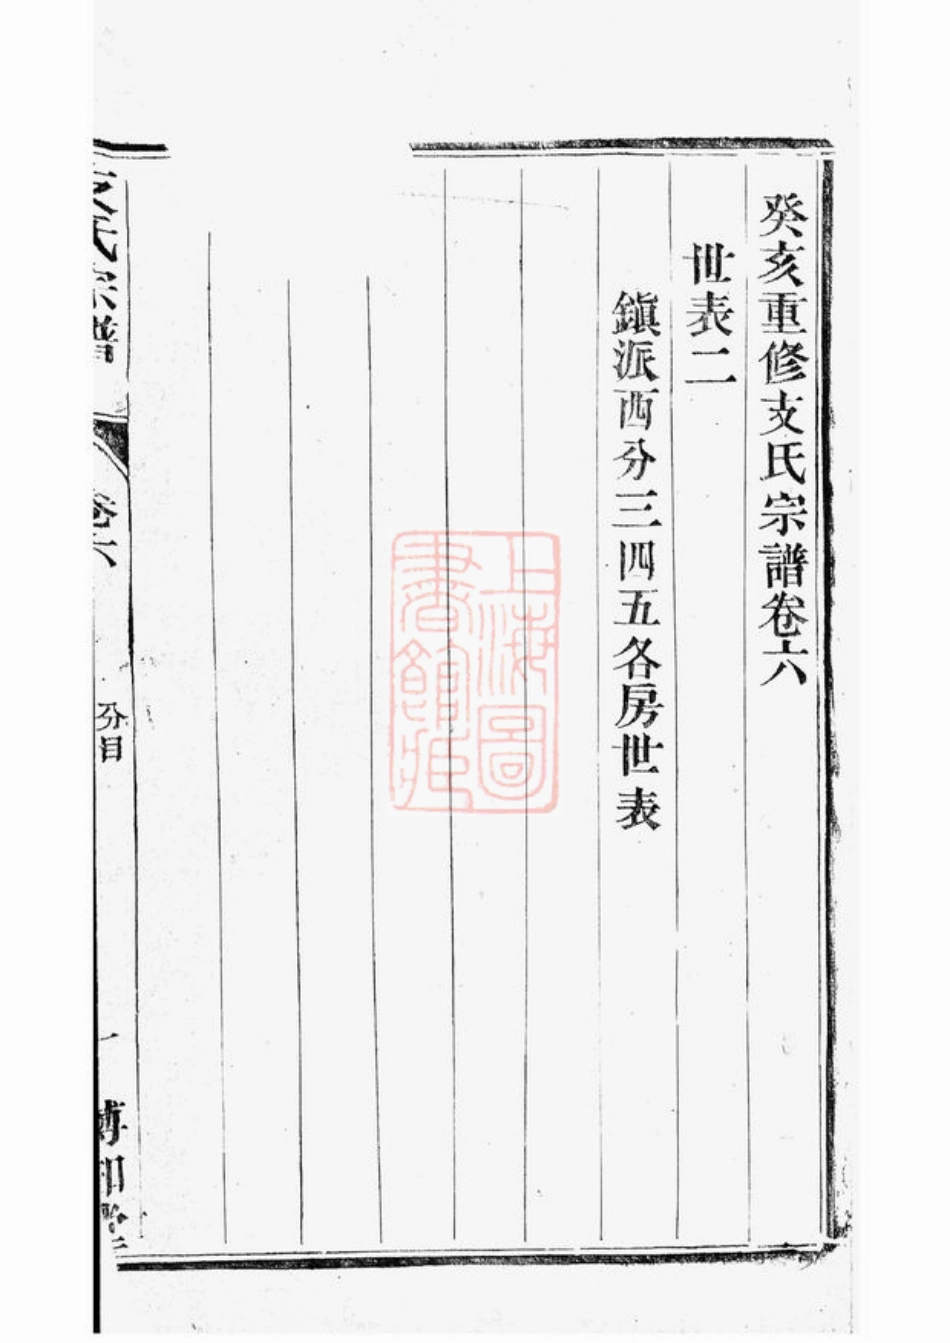 癸亥重修支氏宗譜卷六
世表二
鎭派西分三四五各房世表
上海圖
書館藏
支氏宗譜
卷六
分目
一